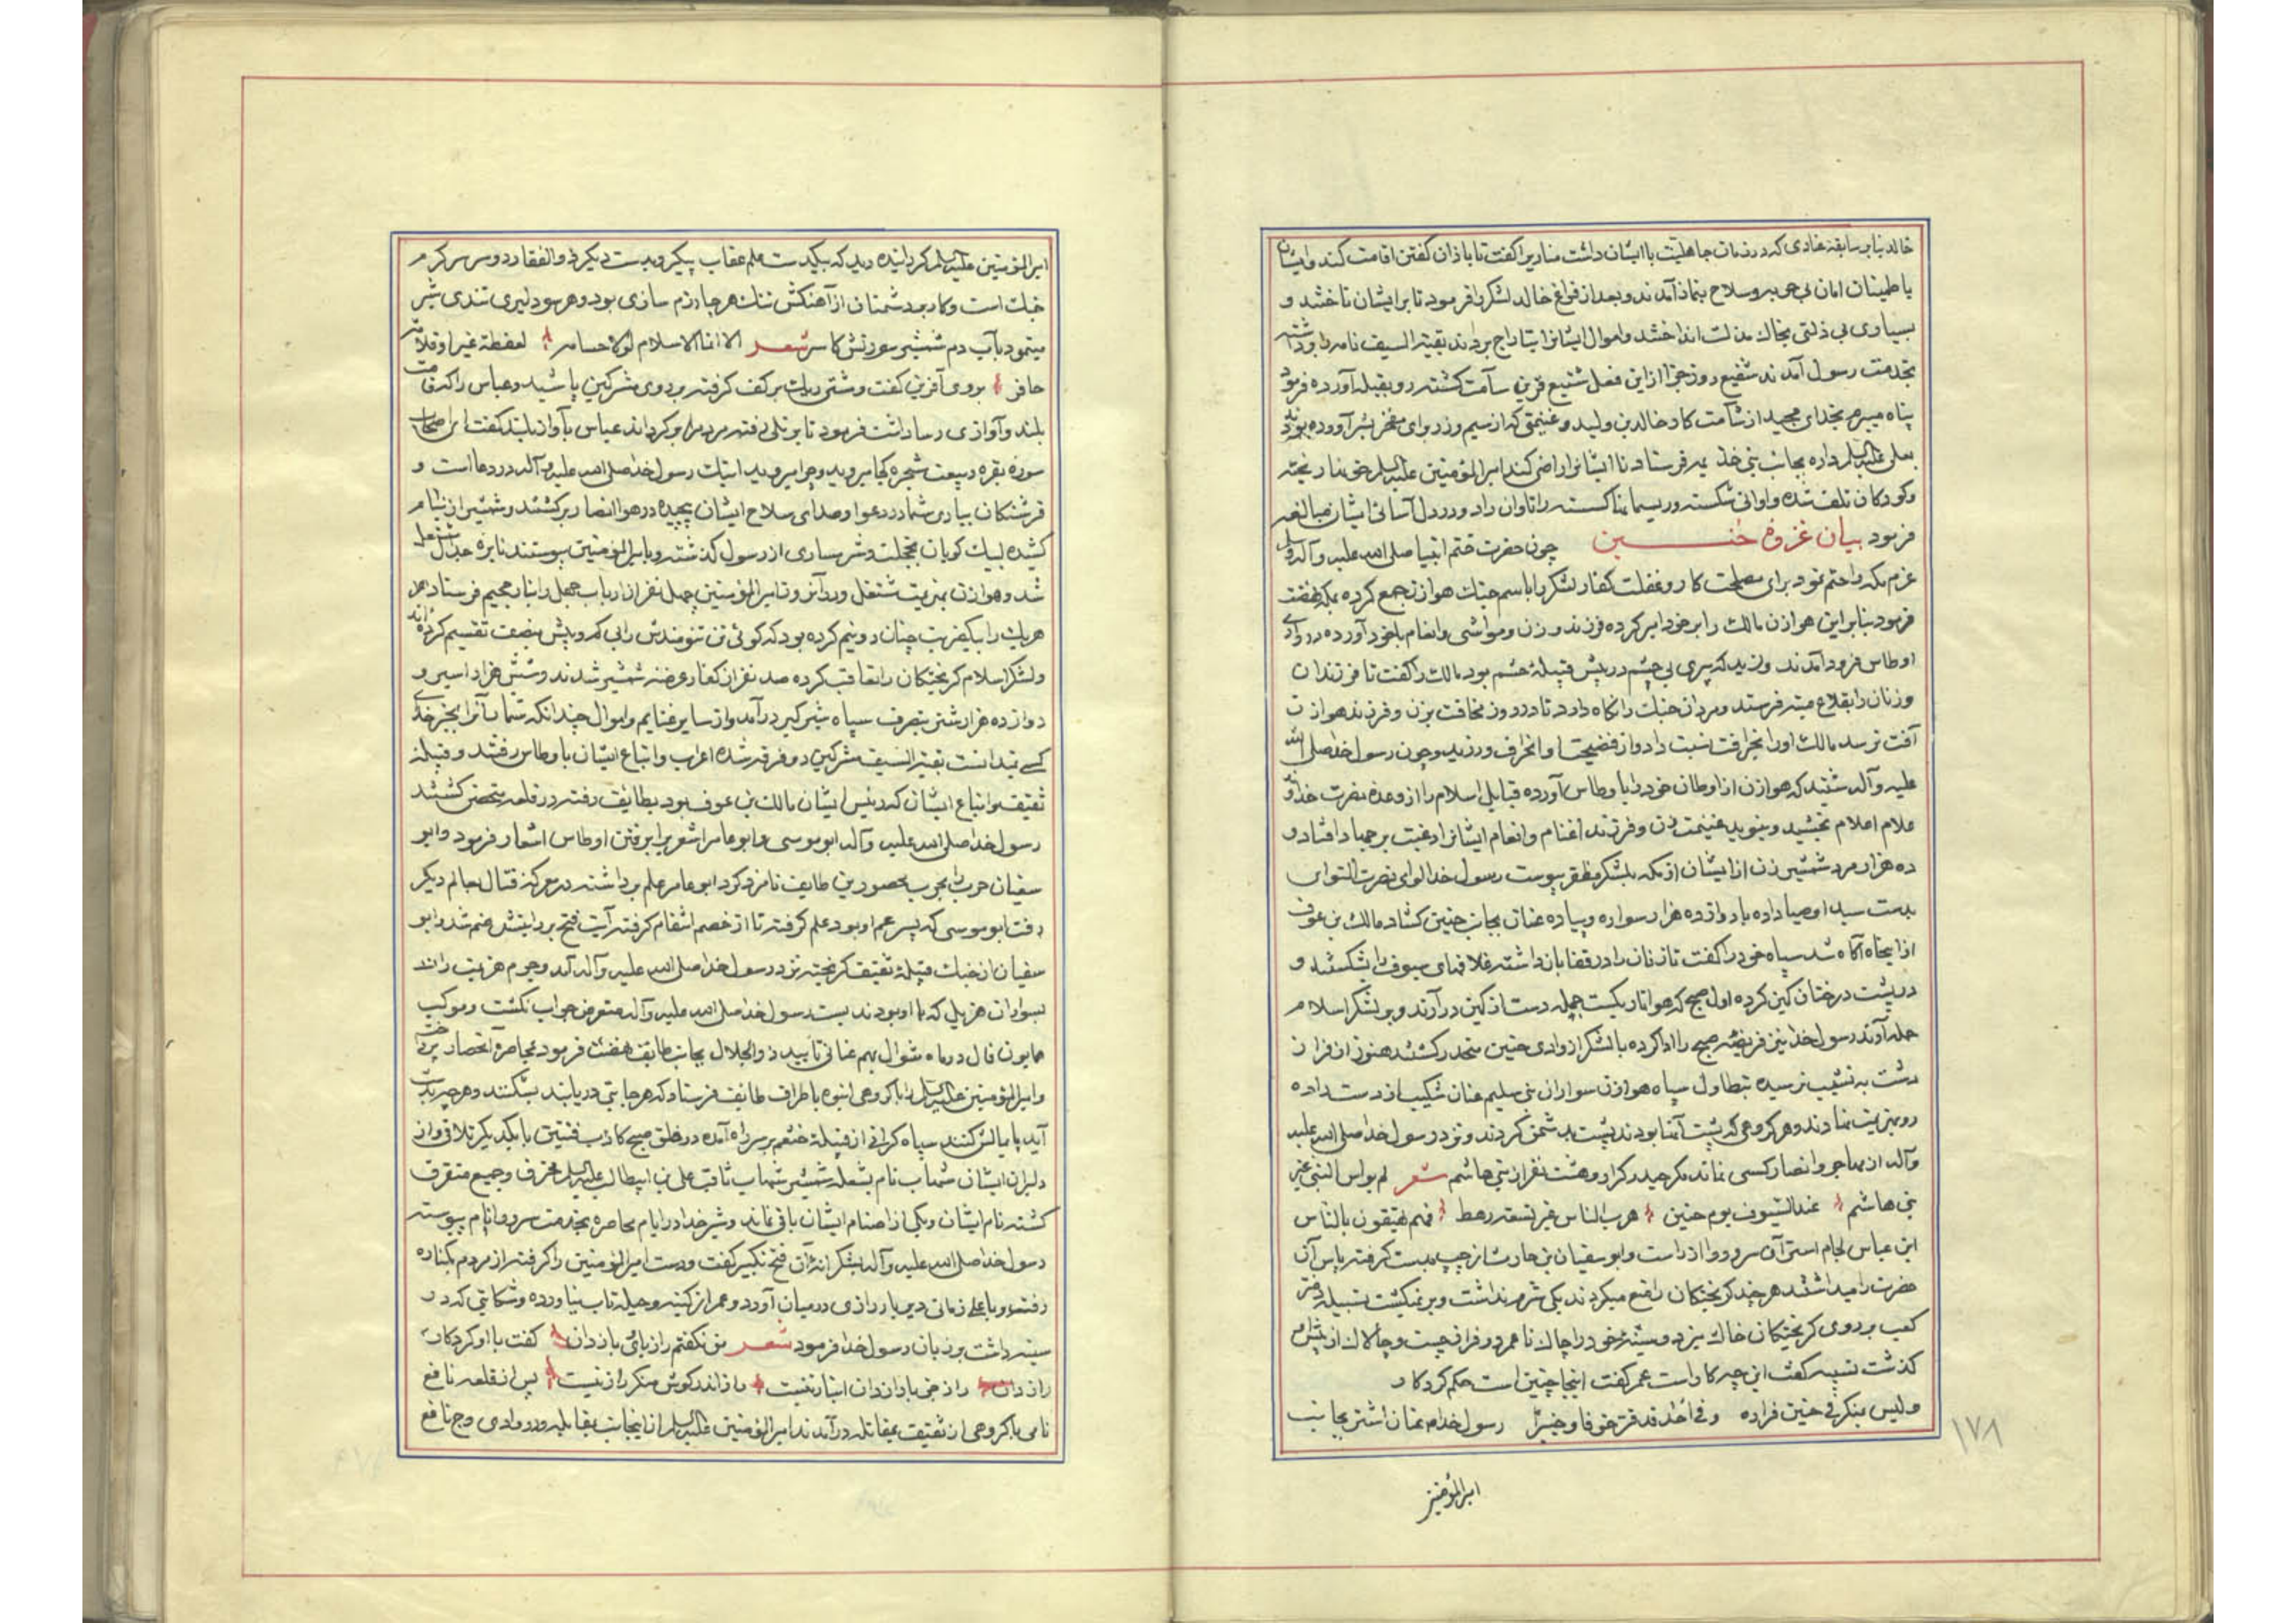 خالد بنابر سابقه عنادی که در زمان جاهلیت با ایشان داشت منادیرا گفت تا باذان گفتن اقامت کند و ایشان
باطمینان امان بی حربه و سلاح بنماز آمدند و بعد از فراغ خالد لشکر را فرمود تا بر ایشان تاختند و
بسیاری بی ذلتی بخاک مذلت انداختند و اموال ایشانرا بتاراج بردند بقیة السیف نامه برداشته
بخدمت رسول آمدند شفیع روز جزا از این فعل شنیع قرین سآمت گشته رو بقبله آورده فرمود
پناه میبرم بخدای مجید از شآمت کار خالد بن ولید و غنیمتی که از سیم و زر برای مفخر بشر آورده بودند
بعلی علیه السلم داده بجانب بنی خذیمه فرستاد تا ایشانرا راضی کند امیرالمؤمنین علیه السلم خون بنا ریخته
و کودکان تلف شده و اوانی شکسته و ریسمانها گسسته را تاوان داد و در دل آسائی ایشان مبالغه
فرمود بیان غزوه حنین چون حضرت ختم انبیا صلی الله علیه و آله و سلم
عزم مکه را حتم نمود برای مصلحت کار و غفلت کفار لشکر را باسم جنک هوازن جمع کرده بمکه نهضت
فرمود بنابراین هوازن مالک را بر خود امیر کرده فرزند و زن و مواشی و انعام با خود آورده در وادی
اوطاس فرود آمدند و زید که پیری بی چشم در پیش قبیله جشم بود مالک را گفت تا فرزندان
و زنان را بقلاع میته فرستد و مردان جنک را نگاه دارد تا در روز مخافت بزن و فرزند هوازن
آفت نرسد مالک او را بخرافت نسبت داد و از فضیحت او انحراف ورزید و چون رسول خدا صلی الله
علیه و آله شنید که هوازن از اوطان خود را با وطاس آورده قبایل اسلام را از وعده نصرت خداوند
علام اعلام بخشید و بنوید غنیمت زن و فرزند اغنام و انعام ایشانرا رغبت بر جهاد افتاد و
ده هزار مرد شمشیر زن از ایشان از مکه بلشکر مظفر پیوست رسول خدا لوای نصرت التوای
بدست سید اوصیا داده با دوازده هزار سواره و پیاده عنان بجانب حنین کشاد مالک بن عوف
از اینجا آگاه شد سپاه خود را گفت تا زنان را در قفا بازداشته غلافهای سیوف را بشکستند و
در پشت درختان کمین کرده اول صبح که هوا تاریکست بجمله دست از کمین درآرند و بر لشکر اسلام
حمله آورند رسول خدا نیز فریضه صبح را ادا کرده با لشکر از وادی حنین منحدر گشتند هنوز از فراز
دشت به نشیب نرسیده بتطاول سپاه هوازن سواران بنی سلیم عنان شکیب از دست داده
رو بهزیمت نهادند و هر گروهی که پشت آنها بودند پشت بدشمن کردند و نزد رسول خدا صلی الله علیه
و آله از مهاجر و انصار کسی نماند مکر حیدر کرار و هشت نفر از بنی هاشم شعر لم یواس النبی غیر
بنی هاشم عند السیوف یوم حنین هرب الناس غیر تسعة رهط فهم یهتفون بالناس
ابن عباس لجام استر آن سرور را از راست و ابو سفیان بن حارث از چپ بدست گرفته پاس آن
حضرت را میداشتند هر چند گریختگان را منع میکردند یکی شرم نداشت و بر نمیگشت نسیبه دختر
کعب بر روی گریختگان خاک میزد و سینه خود را چاک ناعمر در فرار چست و چالاک از پیش او
گذشت نسیبه گفت این چه کار است عمر گفت اینجا چنین است حکم کردکار
و لیس بنکر فی حنین فراره و فی احد قد فر خوفا و خیبرا رسول خدا م عنان اشتر بجانب
امیرالمؤمنین
۱۷۸
امیرالمؤمنین علیه السلم گردانیده دید که بیکدست علم عقاب پیکر و بدست دیکر ذوالفقار دو سر سرکرم
جنک است و کار بر دشمنان از آهنکش تنک هر جا رزم سازی بود و هر سو دلیری تندی شر
مینمود بآب دم شمشیر سوزنش کاسر شعر الا انما الاسلام لولا حسامه لعفطة عنز او قلامة
حافر بروی آفرین گفت و مشتی بر کف گرفته بر روی مشرکین پاشید و عباس را که قامت
بلند و آوازی رسا داشت فرمود تا بر تلی رفته مردم را برگرداند عباس بآواز بلند گفت ای اصحاب
سوره بقره و بیعت شجره کجا میروید و چرا میروید اینک رسول خدا صلی الله علیه و آله در دعا است و
فرشتگان بیاری شما در دعوا و صدای سلاح ایشان پیچیده در هوا انصار برگشتند و شمشیر از نیام
کشیده لبیک گویان بخجلت و شرمساری از رسول گذشته و بامیرالمؤمنین پیوستند نایره جدال مشتعل
شد و هوازن بهزیمت مشتغل و در آنروز امیرالمؤمنین چهل نفر از ارباب جهل را بنار جحیم فرستاد
هریک را بیکضربت چنان دو نیم کرده بود که گوئی تن تنومندش را بی کم و بیش بنصف تقسیم کرده اند
و لشکر اسلام گریختگان را تعاقب کرده صد نفر از کفار عرضه شمشیر شدند و شش هزار اسیر و
دوازده هزار شتر بتصرف سپاه شیر گیر درآمد و از سایر غنایم و اموال چندانکه شمار آنرا بجز خدای
کسی ندانست بقیة السیف مشرکین دو فرقه شده اعراب و اتباع ایشان باوطاس رفتند و قبیله
ثقیف و اتباع ایشان که رئیس ایشان مالک بن عوف بود بطایف رفته در قلعه متحصن گشتند
رسول خدا صلی الله علیه و آله ابو موسی و ابو عامر اشعری را برفتن اوطاس اشعار فرمود و ابو
سفیان حرب را بحرب محصورین طایف نامزد کرد ابو عامر علم برداشته در معرکه قتال بعالم دیگر
رفت ابو موسی که پسر عم او بود علم گرفته تا از خصم انتقام گرفته آیت فتح بر رایتش ختم شد و ابو
سفیان از جنک قبیله ثقیف گریخته نزد رسول خدا صلی الله علیه و آله آمد و جرم هزیمت راند
بسواران هزیل که با او بودند بست رسول خدا صلی الله علیه و آله متعرض جواب نگشت و موکب
همایون فال در ماه شوال بهم عنانی تأیید ذوالجلال بجانب طایف نهضت فرمود بمحاصره آنحصار پرداخت
و امیرالمؤمنین علیه السلم را با گروهی انبوه باطراف طایف فرستاد که هر جا بتی دریابند بشکنند و هر چه بدست
آید پایمالش کنند سپاه گرانی از قبیله خثعم بر سر راه آمده در غلق صبح کاذب فئتین با یکدیگر تلاقی و از
دلیران ایشان شهاب نام بشعله شمشیر شهاب ثاقب علی بن ابیطالب علیه السلم محترق و جمیع متفرق
گشته نام ایشان و یکی از اصنام ایشان باقی نماند و شیر خدا در ایام محاصره بخدمت سرور انام پیوسته
رسول خدا صلی الله علیه و آله بشکرانه آن فتح تکبیر گفت و دست امیرالمؤمنین را گرفته از مردم بکناره
رفته و با علی زمانی دیر باز رازی در میان آورد و عمر از کینه و حیله تاب نیاورده و شکایتی که در
سینه داشت بر زبان رسول خدا فرمود شعر من نگفتم راز بائی بازدان گفت با او کردکار
راز دان راز حق با راز دان انباز نیست راز اند گوش منکر راز نیست پس از قلعه نافع
نامی با گروهی از ثقیف بمقاتله درآمدند امیرالمؤمنین علیه السلم از اینجانب بمقابله و در وادی وج نافع